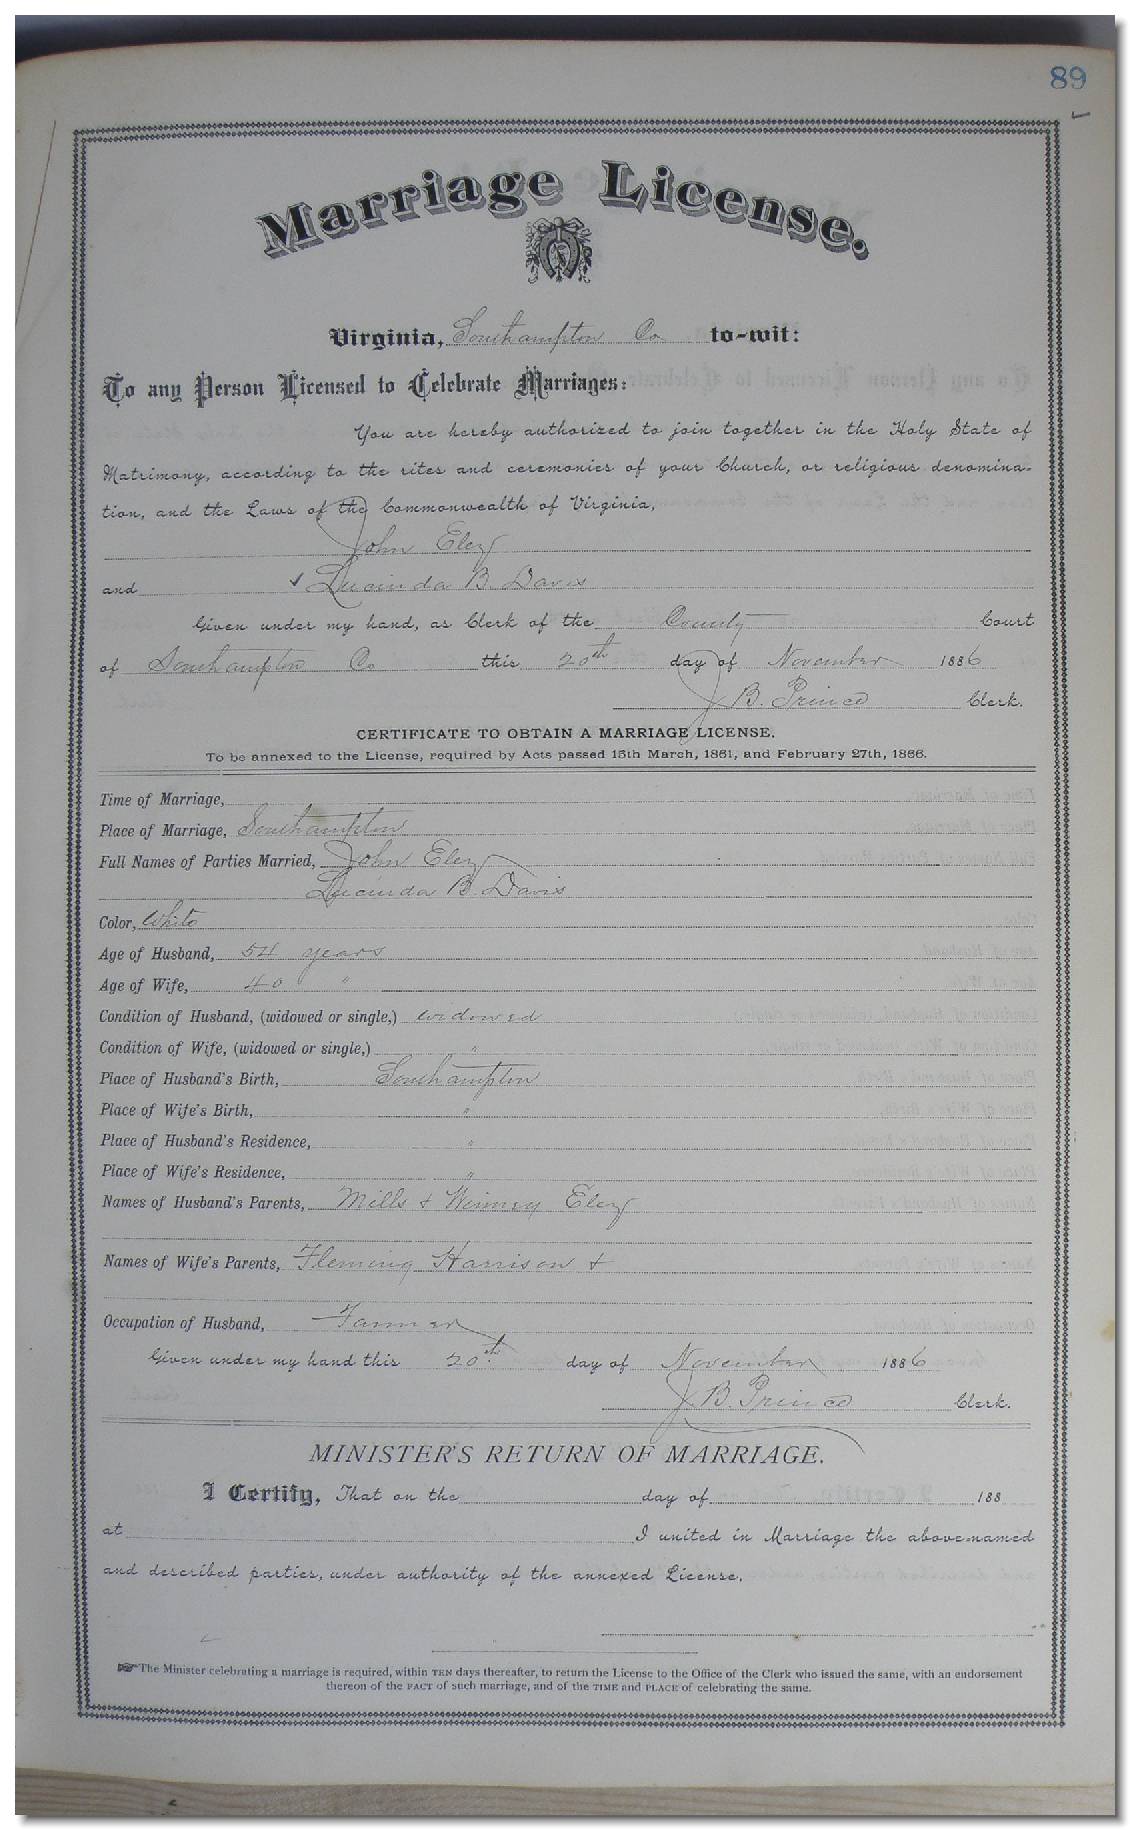 89
Marriage License.
Virginia, Southampton Co to-wit:
To any Person Licensed to Celebrate Marriages:
You are hereby authorized to join together in the Holy State of
Matrimony, according to the rites and ceremonies of your Church, or religious denomina-
tion, and the Laws of the Commonwealth of Virginia,
John Eley
and Lucinda B. Davis
Given under my hand, as Clerk of the County Court
of Southampton Co this 20th day of November 1886
J. B. Prince Clerk.
CERTIFICATE TO OBTAIN A MARRIAGE LICENSE.
To be annexed to the License, required by Acts passed 15th March, 1861, and February 27th, 1866.
Time of Marriage,
Place of Marriage, Southampton
Full Names of Parties Married, John Eley
Lucinda B. Davis
Color, White
Age of Husband, 54 years
Age of Wife, 40 "
Condition of Husband, (widowed or single,) widowed
Condition of Wife, (widowed or single,) "
Place of Husband's Birth, Southampton
Place of Wife's Birth, "
Place of Husband's Residence, "
Place of Wife's Residence, "
Names of Husband's Parents, Mills & Winney Eley
Names of Wife's Parents, Fleming Harrison &
Occupation of Husband, Farmer
Given under my hand this 20th day of November 1886
J. B. Prince Clerk.
MINISTER'S RETURN OF MARRIAGE.
I Certify, That on the day of 188
at I united in Marriage the above-named
and described parties, under authority of the annexed License.
☞ The Minister celebrating a marriage is required, within TEN days thereafter, to return the License to the Office of the Clerk who issued the same, with an endorsement
thereon of the FACT of such marriage, and of the TIME and PLACE of celebrating the same.